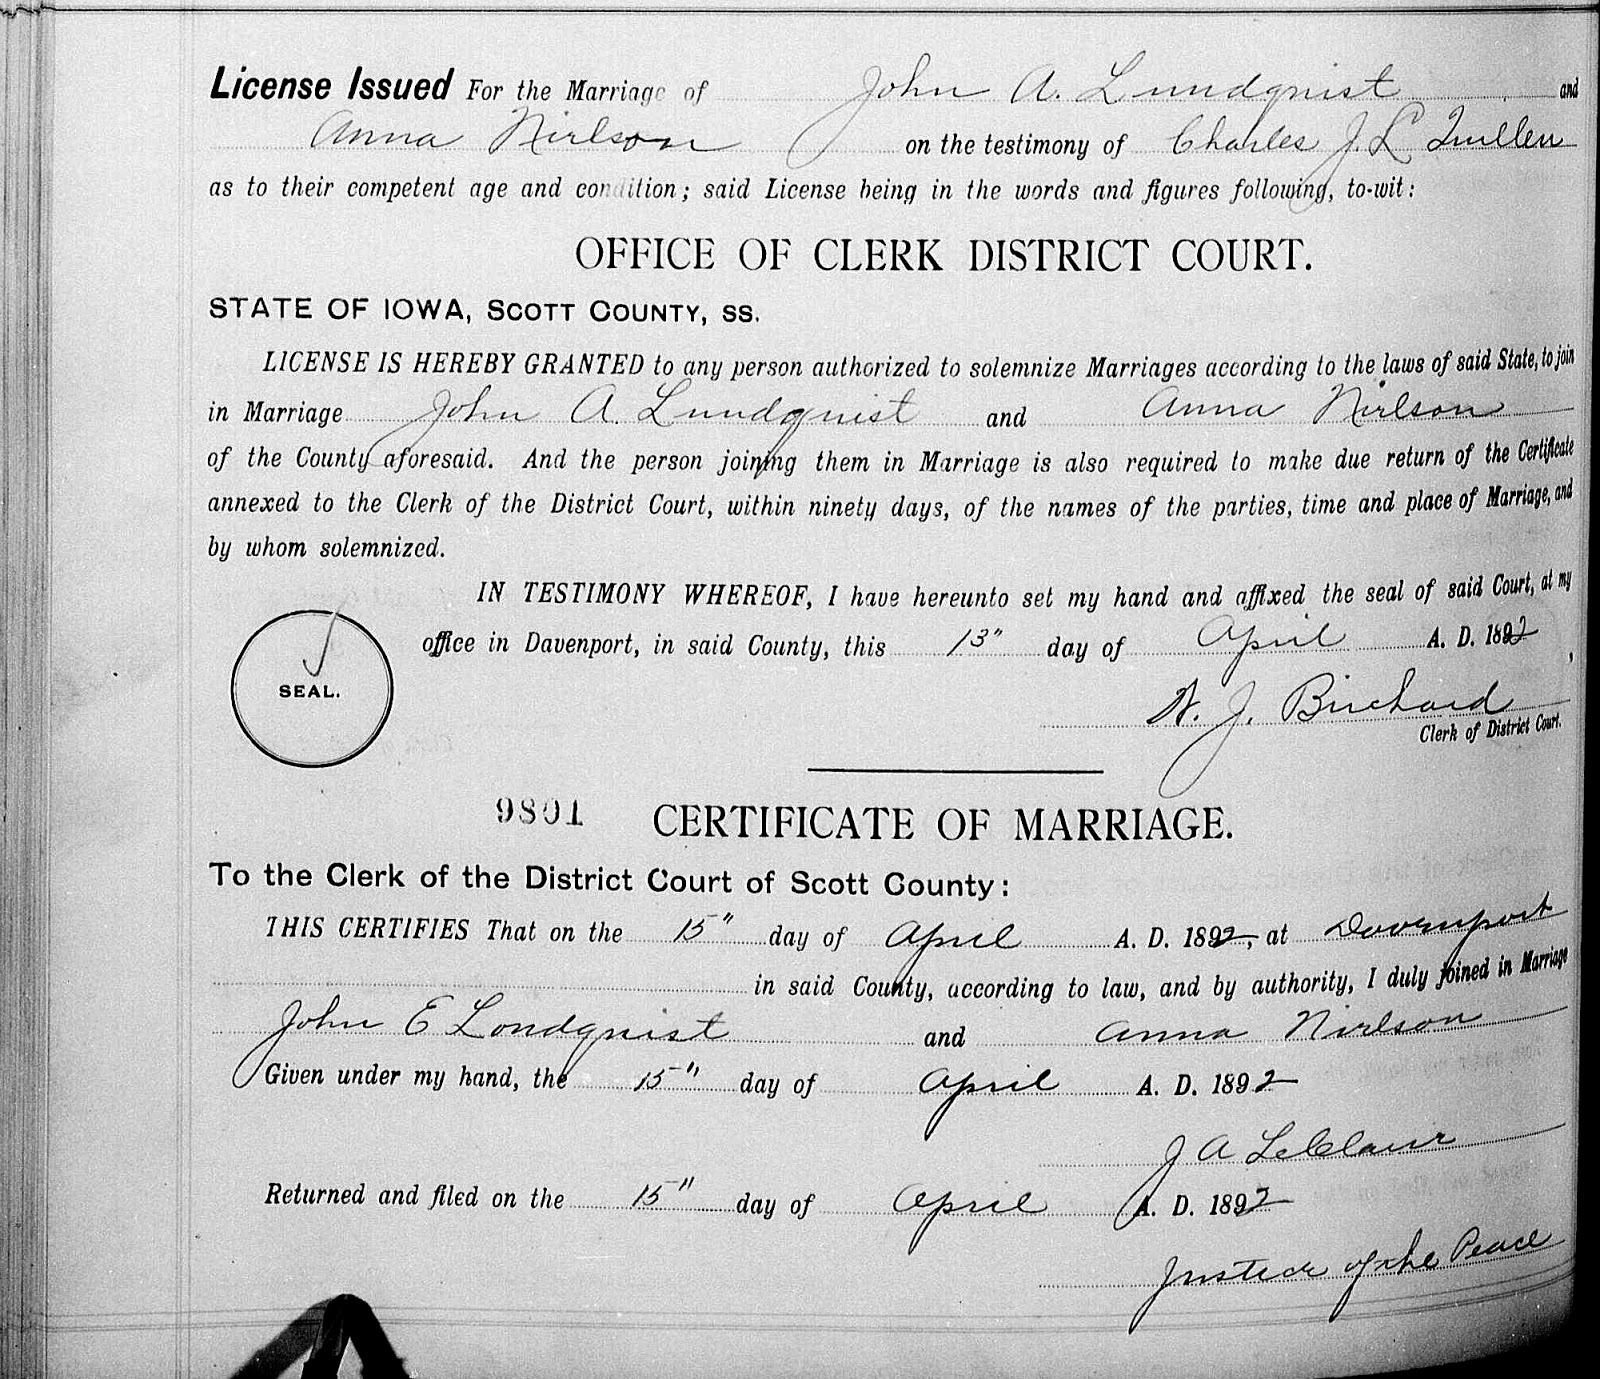 License Issued For the Marriage of John A. Lundquist and
Anna Nielson on the testimony of Charles J. L
as to their competent age and condition; said License being in the words and figures following, to-wit:
OFFICE OF CLERK DISTRICT COURT.
STATE OF IOWA, SCOTT COUNTY, SS.
LICENSE IS HEREBY GRANTED to any person authorized to solemnize Marriages according to the laws of said State, to join
in Marriage John A. Lundquist and Anna Nielson
of the County aforesaid. And the person joining them in Marriage is also required to make due return of the Certificate
annexed to the Clerk of the District Court, within ninety days, of the names of the parties, time and place of Marriage, and
by whom solemnized.
IN TESTIMONY WHEREOF, I have hereunto set my hand and affixed the seal of said Court, at my
office in Davenport, in said County, this 13" day of April A. D. 1892
SEAL.
J. Birchard
Clerk of District Court.
9801 CERTIFICATE OF MARRIAGE.
To the Clerk of the District Court of Scott County:
THIS CERTIFIES That on the 15" day of April A. D. 1892, at Davenport
in said County, according to law, and by authority, I duly joined in Marriage
John E Londquist and Anna Nielson
Given under my hand, the 15" day of April A. D. 1892
J A LeClaire
Returned and filed on the 15" day of April A. D. 1892
Justice of the Peace